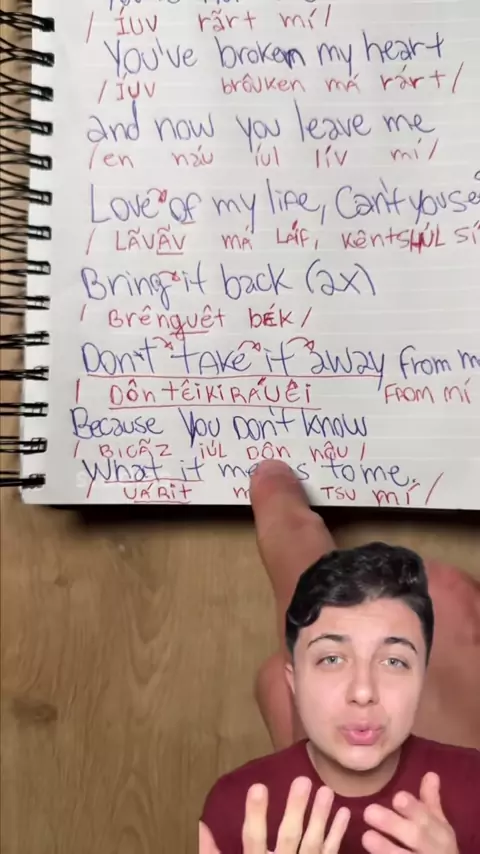 / ÍUV rãrt mí /
You've broken my heart
/ IUV brôuken má rárt /
and now you leave me
/ en náu íul lív mí /
Love of my life, Can't you se
/ LÃVÃV MÁ LÁIF, KÊntSHÚL SÍ
Bring it back (2x)
/ Brênguêt bÉK /
Don't take it away from m
/ DÔn tÊIKIRÁUÊI FROM MÍ
Because You Don't know
/ BICÃZ IÚL DÔn nôu /
What it me s to me.
/ UÁRit m TSU mí /